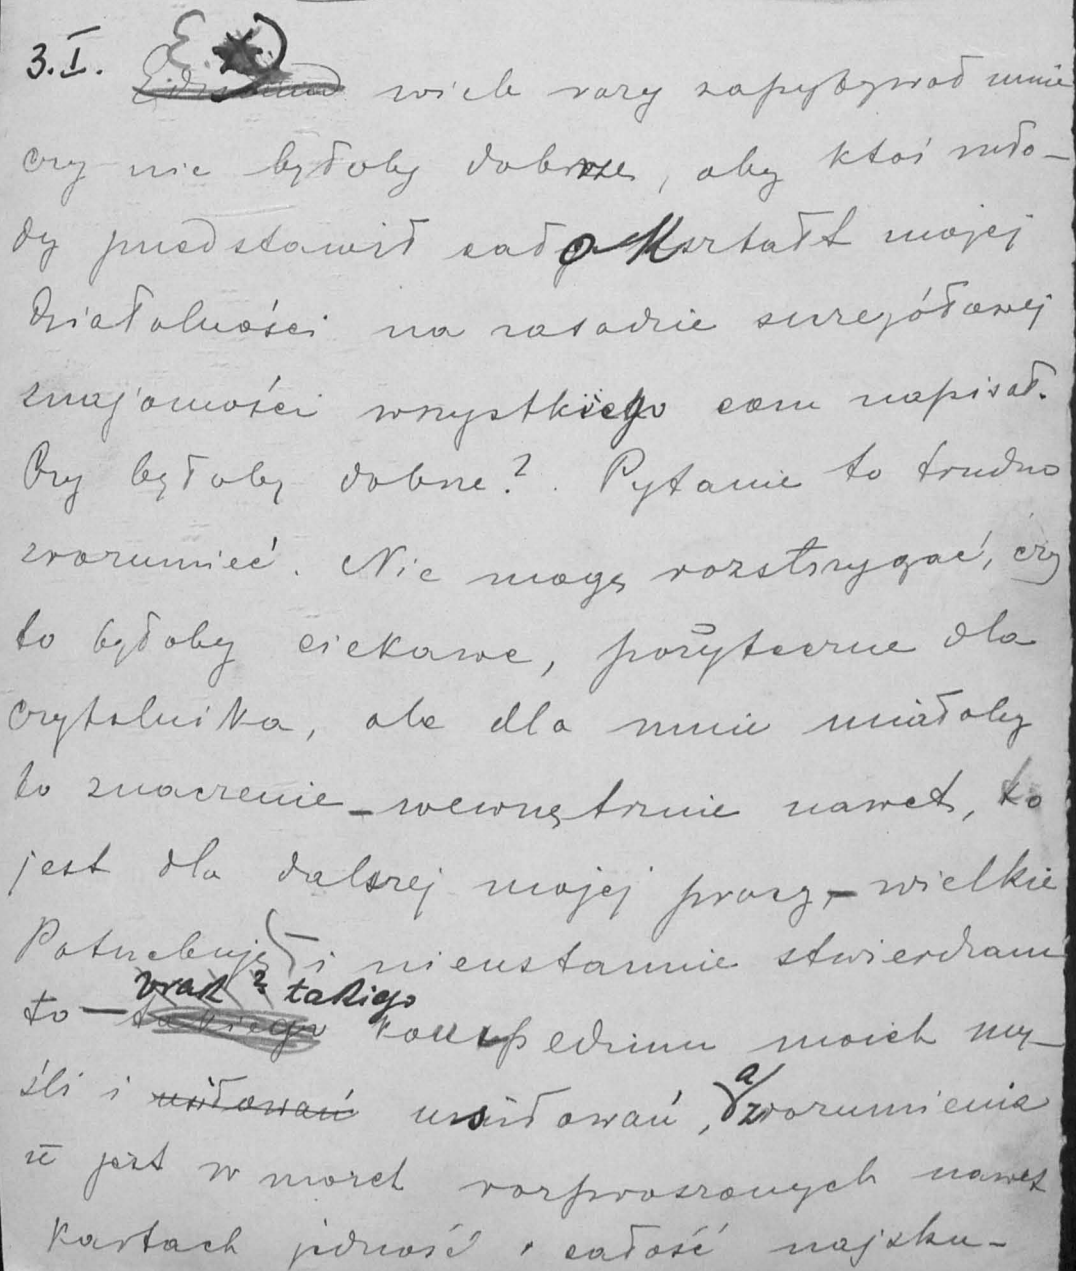 3.I. E. wiele razy zapytywał mnie
czy nie byłoby dobrze, aby ktoś mło-
dy przedstawił cało kształt mojej
działalności na zasadzie szczegółowej
znajomości wszystkiego com napisał.
Czy byłoby dobrze? Pytanie to trudno
zrozumieć. Nie mogę rozstrzygać, czy
to byłoby ciekawe, pożyteczne dla
czytelnika, ale dla mnie miałoby
to znaczenie – wewnętrznie nawet, to
jest dla dalszej mojej pracy, – wielkie
Potrzebuję i nieustannie stwierdzam
wrak? takiego
to – takiego kompedium moich my-
śli i usiłowań usiłowań, a zrozumienia
iż jest w moich rozproszonych nawet
kartach jedność i całość najzku-